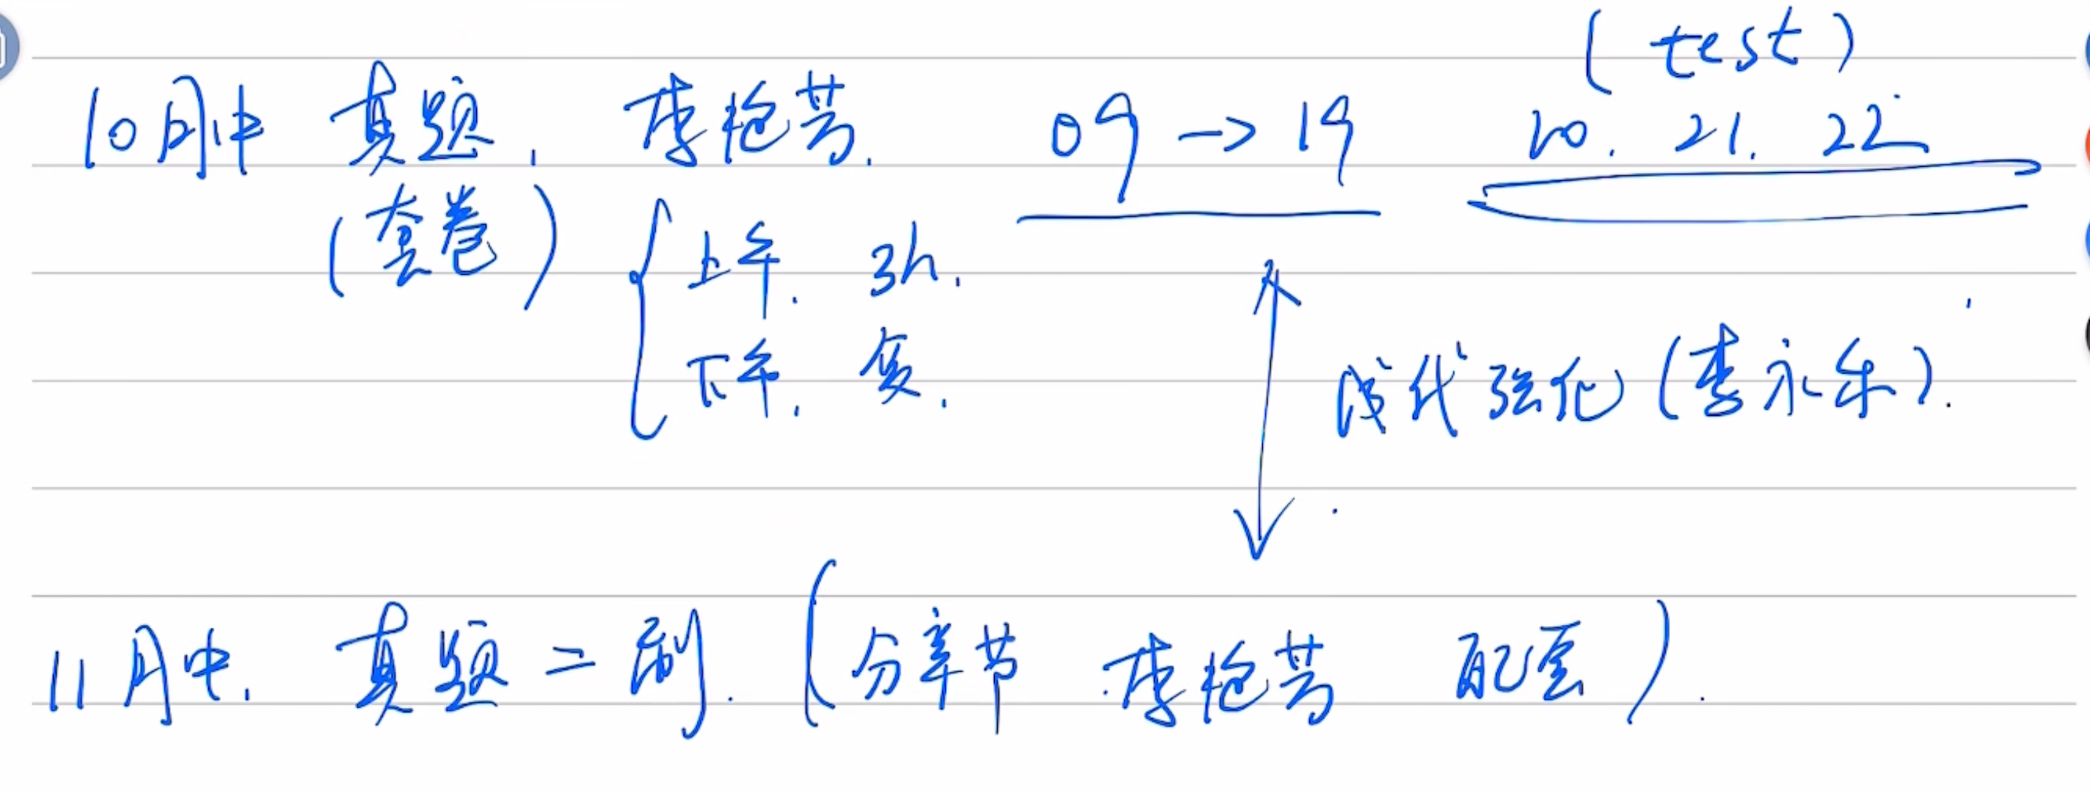 (test)
10月中 真题, 李艳芳. 09→19 20. 21. 22
(套卷) { 上午. 3h.
下午. 复.
线代强化(李永乐).
11月中. 真题二刷. (分章节 李艳芳 配套).